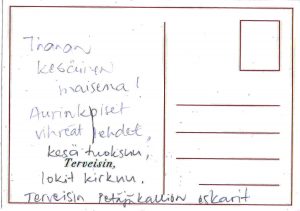 Ihanan
kesäinen
maisema!
Aurinkoiset
vihreät lehdet,
kesä tuoksuu,
Terveisin,
lokit kirkuu.
Terveisin Petäjäkallion oskarit